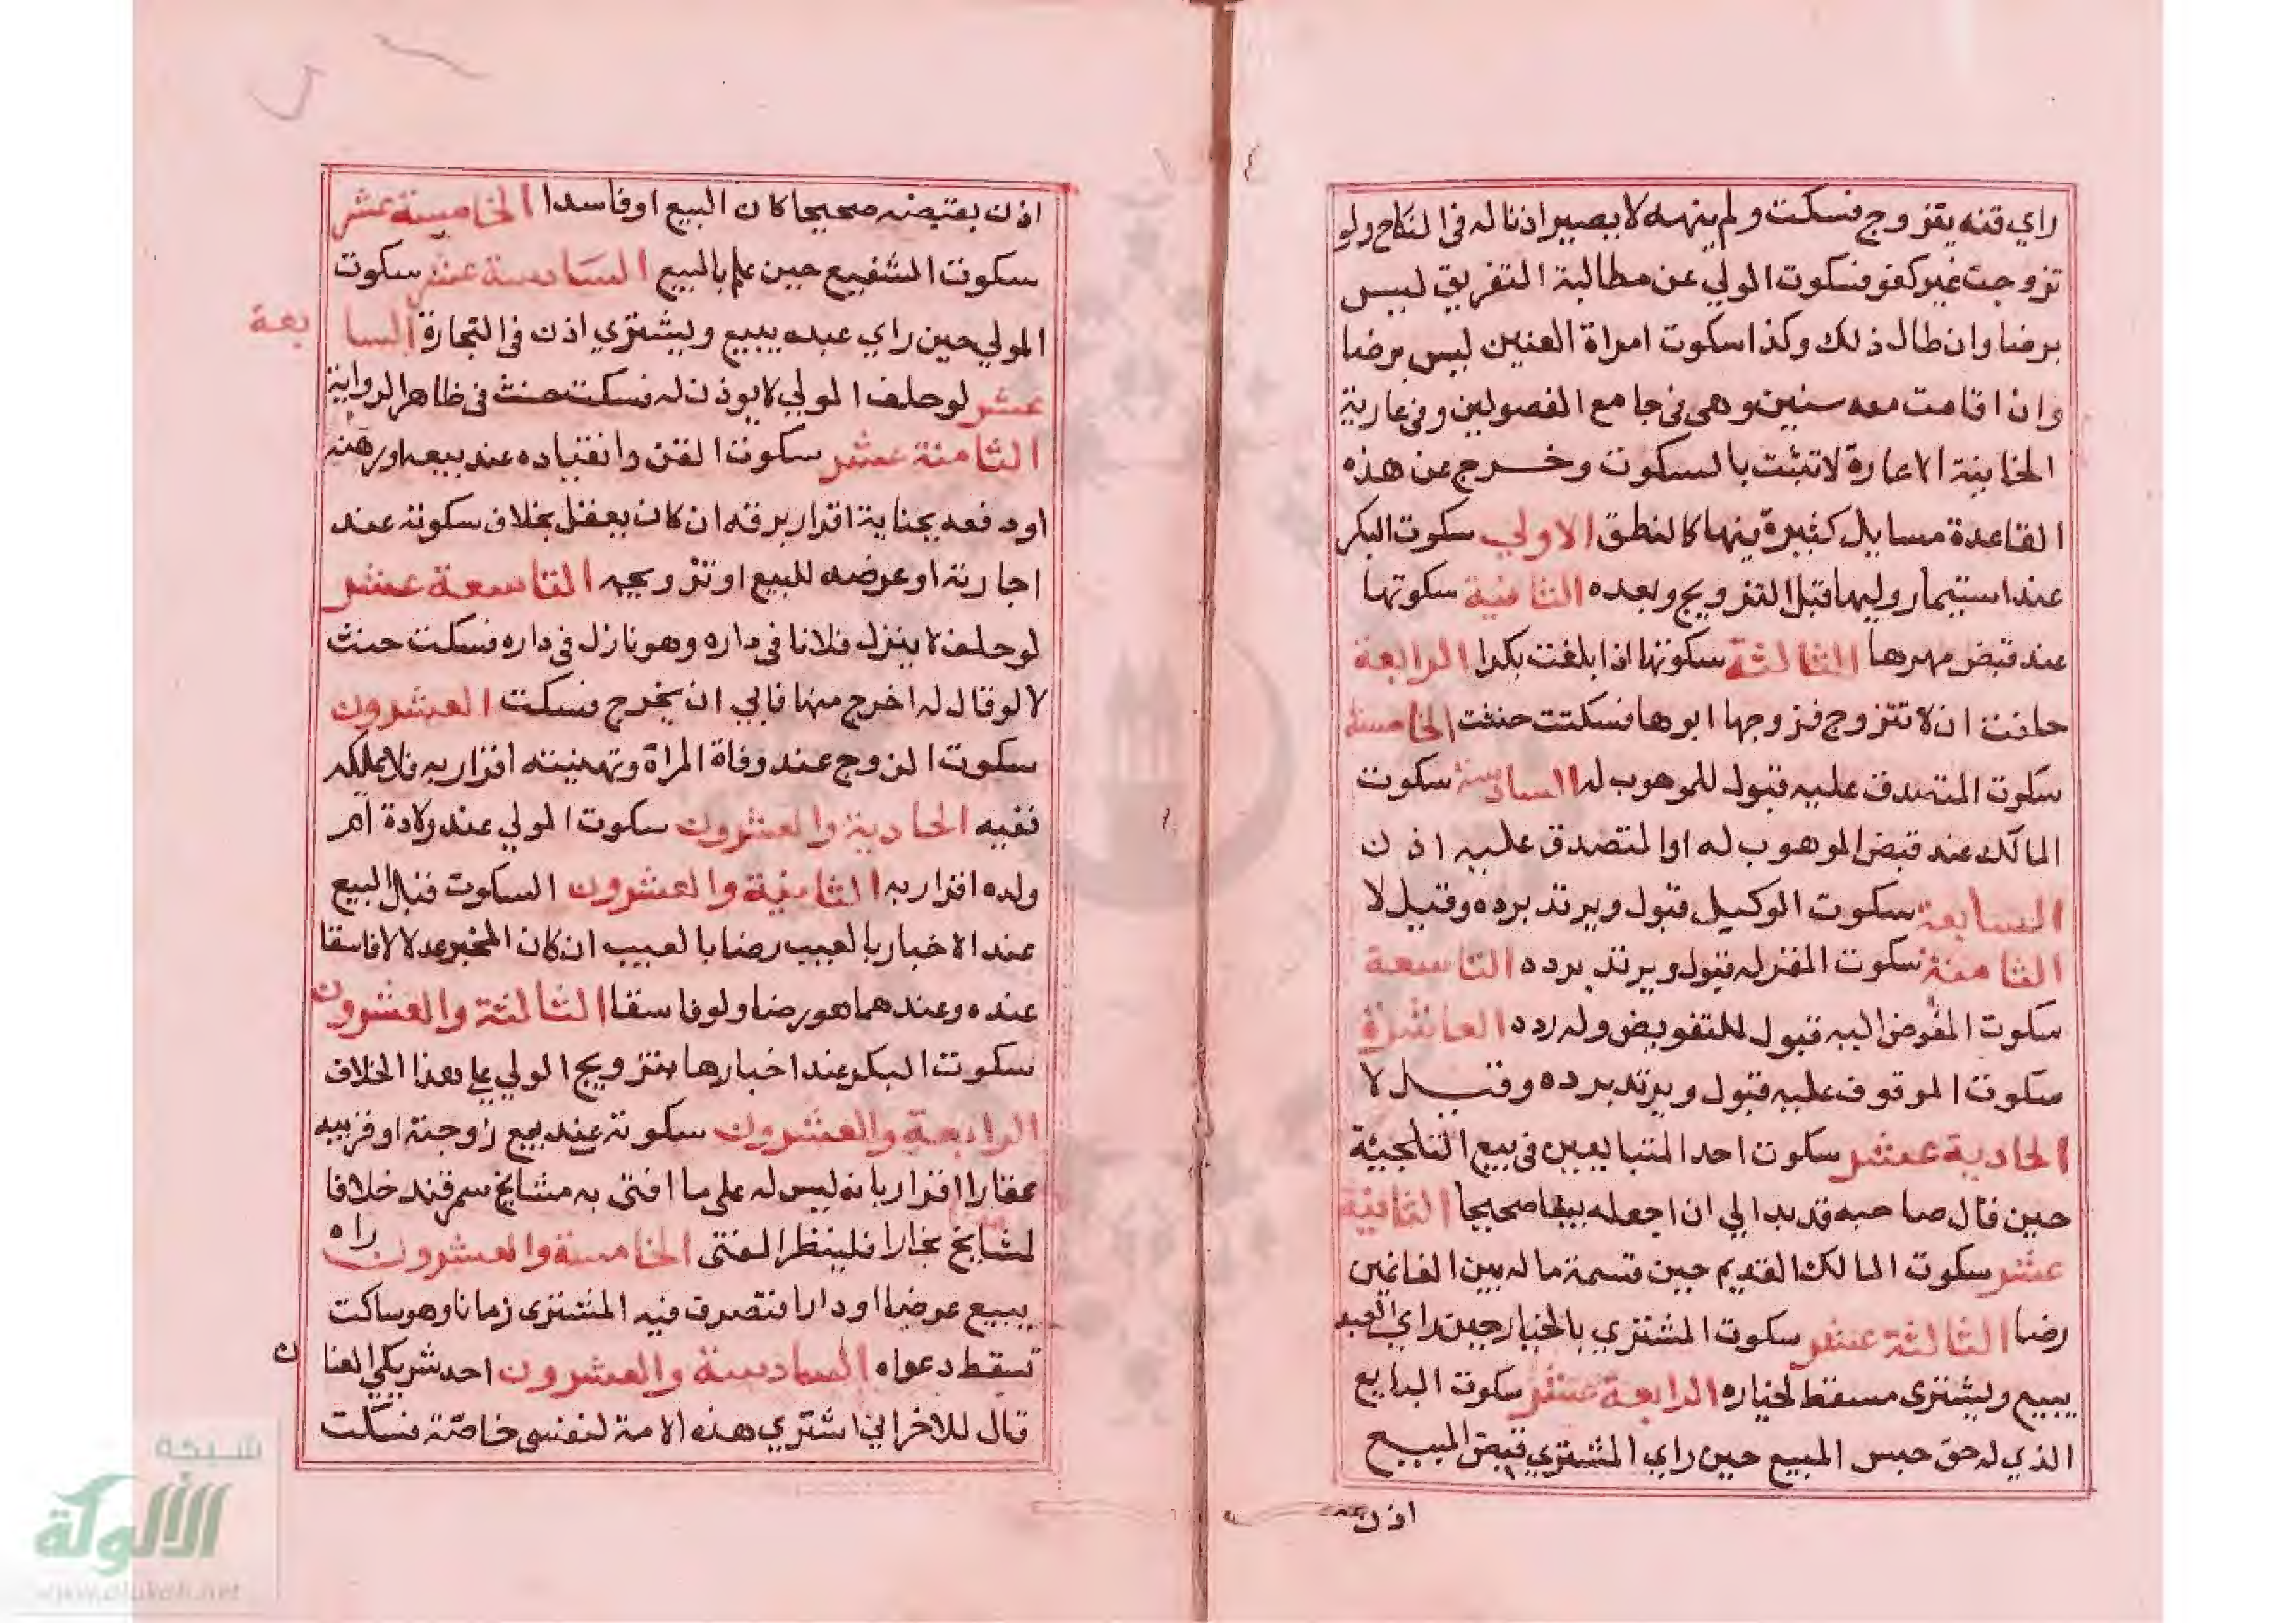 راي قنه يتزوج فسكت ولم ينهه لا يصير اذنا له في النكاح ولو
تزوجت غير كفو فسكوت المولي عن مطالبة التفريق ليس
برضا وان طال ذلك وكذا سكوت امراة العنين ليس برضا
وان اقامت معه سنين وهي في جامع الفصولين وفي عارية
الخانية الاعارة لا تثبت بالسكوت وخرج عن هذه
القاعدة مسايل كثيرة ينها كالنطق الاولي سكوت البكر
عند استيمار وليها قبل التزويج وبعده الثانية سكوتها
عند قبض مهرها الثالثة سكوتها اذا بلغت بكرا الرابعة
حلفت ان لا تتزوج فزوجها ابوها فسكتت حنثت الخامسة
سكوت المتصدق عليه قبول للموهوب له السادسة سكوت
المالك عند قبض الموهوب له او المتصدق عليه اذن
السابعة سكوت الوكيل قبول ويرتد برده وقيل لا
الثامنة سكوت المقر له قبول ويرتد برده التاسعة
سكوت المفوض اليه قبول للتفويض وله رده العاشرة
سكوت الموقوف عليه قبول ويرتد برده وقيل لا
الحادية عشر سكوت احد المتبايعين في بيع التلجيئة
حين قال صاحبه قد بدا لي ان اجعله بيعا صحيحا الثانية
عشر سكوت المالك القديم حين قسمة ماله بين الغانمين
رضا الثالثة عشر سكوت المشتري بالخيار حين راي العبد
يبيع ويشتري مسقط لخياره الرابعة عشر سكوت البايع
الذي له حق حبس المبيع حين راي المشتري قبض المبيع
اذن
اذن بقبضه صحيحا كان البيع او فاسدا الخامسة عشر
سكوت الشفيع حين علم بالبيع السادسة عشر سكوت
المولي حين راي عبده يبيع ويشتري اذن في التجارة السابعة
عشر لو حلف المولي لا يوذن له فسكت حنث في ظاهر الرواية
الثامنة عشر سكوت القن وانقياده عند بيعه او رهنه
او دفعه بجناية اقرار برقه ان كان يعقل بخلاف سكوته عند
اجارته او عرضه للبيع او تزويجه التاسعة عشر
لو حلف لا ينزل فلانا في داره وهو نازل في داره فسكت حنث
لا لو قال له اخرج منها فابي ان يخرج فسكت العشرون
سكوت الزوج عند وفاة المراة وتهنيته اقرار به فلا يملك
نفيه الحادية والعشرون سكوت المولي عند ولادة ام
ولده اقرار به الثانية والعشرون السكوت قبل البيع
عند الاخبار بالعيب رضا بالعيب ان كان المخبر عدلا لا فاسقا
عنده وعندهما هو رضا ولو فاسقا الثالثة والعشرون
سكوت البكر عند اخبارها بتزويج الولي علي هذا الخلاف
الرابعة والعشرون سكوته عند بيع زوجته او قريبه
عقارا اقرار بانه ليس له على ما افتى به مشايخ سمرقند خلافا
لمشايخ بخارا فلينظر المفتى الخامسة والعشرون راه
يبيع عرضا او دارا فتصرف فيه المشترى زمانا وهو ساكت
تسقط دعواه السادسة والعشرون احد شريكي العنان
قال للاخر اني اشتري هذه الامة لنفسى خاصة فسكت
شبكة
الألوكة
www.alukah.net